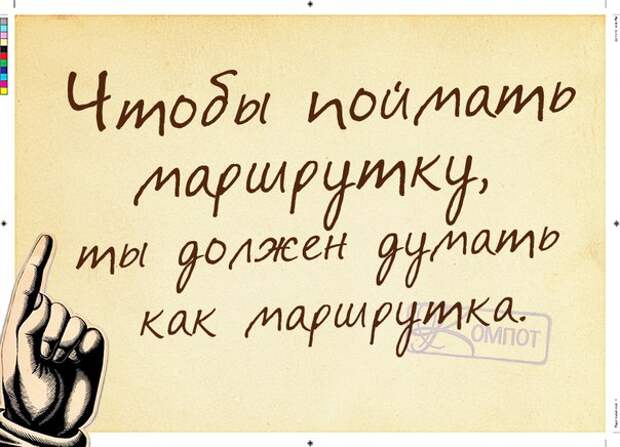 Чтобы поймать
маршрутку,
ты должен думать
как маршрутка.
КОМПОТ